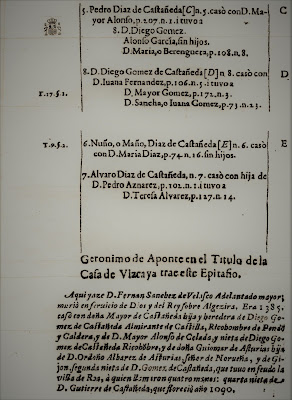 5. Pedro Diaz de Castañeda [C] n. 5. casò con D. Ma- C
yor Alonso, p. 207. n. 1. i tuvo a
8. D. Diego Gomez.
Alonso Garcia, sin hijos.
D. Maria, o Berenguera, p. 108. n. 8.
8. D. Diego Gomez de Castañeda [D] n 8. casò con D
D. Iuana Fernandez, p. 106. n. 5. i tuvo a
T. 17. §. 1. D. Mayor Gomez, p. 172. n. 3.
D. Sancha, o Iuana Gomez, p. 73. n. 23.
T. 9. §. 2. 6. Nuño, o Maño, Diaz de Castañeda [E] n. 6. casò E
con D. Maria Diaz, p. 74. n. 16. sin hijos.
7. Alvaro Diaz de Castañeda, n. 7. casò con hija de
D. Pedro Aznarez, p. 102. n. 1. i tuvo a
D. Teresa Alvarez, p. 127. n. 14.
Geronimo de Aponte en el Titulo de la
Casa de Vizcaya trae este Epitafio.
Aqui yaze D. Fernan Sanchez de Velasco Adelantado mayor,
murió en servicio de Dios y del Rey sobre Algezira. Era 1385.
casó con deña Mayor de Castañeda hija y heredera de Diego Go-
mez de Castañeda Almirante de Castilla, Ricohombre de Pendó
y Caldera, y de D. Mayor Alonso de Celada, y nieta de Diego Go-
mez de Castañeda Ricohõbre, y de doña Guiomar de Asturias hija
de D. Ordoño Albarez de Asturias, señor de Norueña, y de Gi-
jon, segunda nieta de D. Gomez de Castañeda, que tuuo en feudo la
villa de Roa, á quien llamaron quatro manos: quarta nieta de
D. Gutierre de Castañeda, que floreció año 1090.